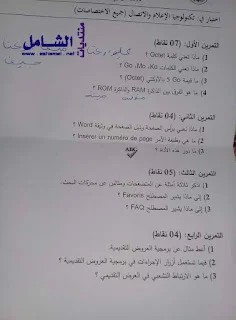 اختبار في: تكنولوجيا الإعلام والاتصال (جميع الاختصاصات)
منتديات الشامل
eshamel.net
التمرين الأول: (07 نقاط)
1) ماذا تعني كلمة Octet ؟
2) ماذا تعني الكلمات Go ،Mo ،Ko ؟
3) ما قيمة Go 5 بالأوكتي (Octet) ؟
4) ما هو الفرق بين الذاكرة RAM والذاكرة ROM ؟
التمرين الثاني: (04 نقاط)
1) ماذا نعني برأس الصفحة وتذييل الصفحة في وثيقة Word ؟
2) ما هي وظيفة الأمر Insérer un numéro de page ؟
3) ما دور هذه الأداة ؟
ABC
التمرين الثالث: (05 نقاط)
1) أذكر ثلاثة أمثلة عن المتصفحات ومثالين عن محركات البحث.
2) إلى ماذا يشير المصطلح Favoris ؟
3) إلى ماذا يشير المصطلح FAQ ؟
التمرين الرابع: (04 نقاط)
1) أعط مثال عن برمجية العروض التقديمية.
2) فيما تستعمل أزرار الإجراءات في برمجية العروض التقديمية ؟
3) ما هو الارتباط التشعبي في العرض التقديمي ؟